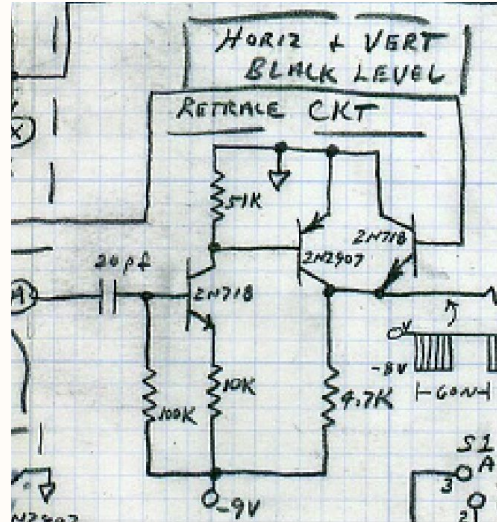 HORIZ + VERT
BLACK LEVEL
RETRACE CKT
X
51K
2N718
2N2907
20pf
A
2N718
0V
-8V
10K
4.7K
100K
S1
A
3
-9V
2